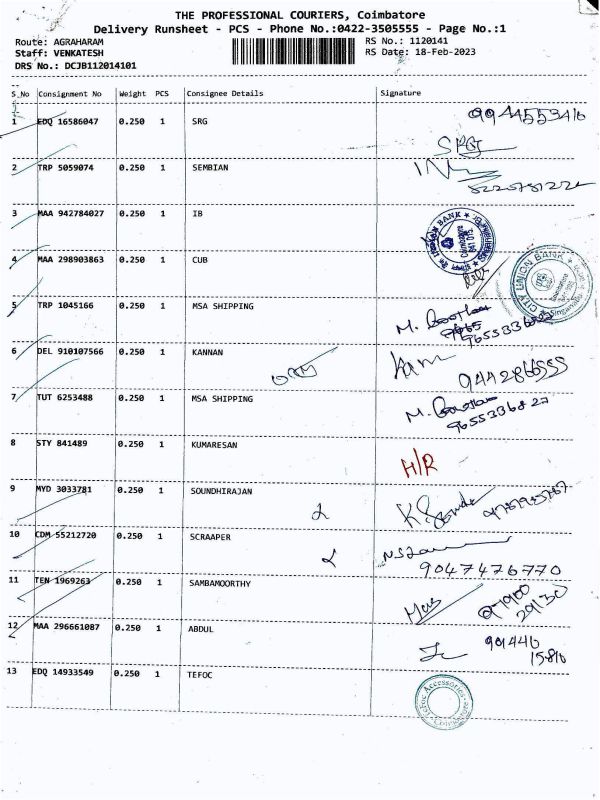 THE PROFESSIONAL COURIERS, Coimbatore
Delivery Runsheet - PCS - Phone No.:0422-3505555 - Page No.:1
Route: AGRAHARAM RS No.: 1120141
Staff: VENKATESH RS Date: 18-Feb-2023
DRS No.: DCJB112014101
S_No Consignment No Weight PCS Consignee Details Signature
1 EDQ 16586047 0.250 1 SRG 9944553416
SRG
2 TRP 5059074 0.250 1 SEMBIAN
3 MAA 942784027 0.250 1 IB
BANK
Coimbatore
641 013.
4 MAA 298903863 0.250 1 CUB
CITY UNION BANK
5 TRP 1045166 0.250 1 MSA SHIPPING M.
6 DEL 910107566 0.250 1 KANNAN
9442866555
7 TUT 6253488 0.250 1 MSA SHIPPING M.
9655336827
8 STY 841489 0.250 1 KUMARESAN H/R
9 MYD 3033781 0.250 1 SOUNDHIRAJAN
10 CDM 55212720 0.250 1 SCRAAPER
9047476770
11 TEN 1969263 0.250 1 SAMBAMOORTHY
12 MAA 296661087 0.250 1 ABDUL
13 EDQ 14933549 0.250 1 TEFOC
Tefoc Accessories
Coimbatore